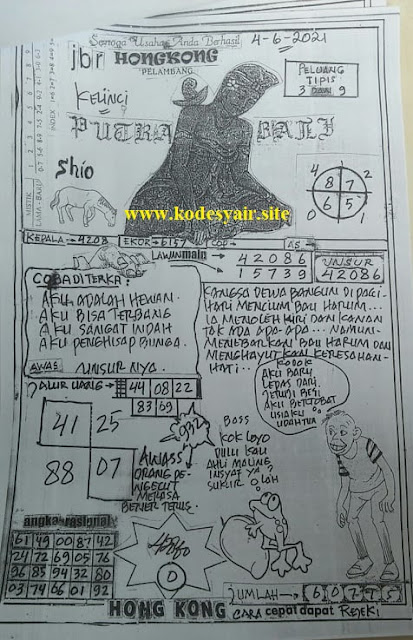 Semoga Usaha Anda Berhasil
4-6-2021
jbr HONGKONG
PELAMBANG
KELINCI
PELUANG
TIPIS
3 9
PUTRA BALI
Shio
4 2
8 7
6 5
0 1
www.kodesyair.site
KEPALA → 4208
EKOR → 6157
COP →
AS →
LAWAN main
42086
15739
UNSUR
42086
COBA DITERKA:
AKU ADALAH HEWAN.
AKU BISA TERBANG
AKU SANGAT INDAH
AKU PENGHISAP BUNGA.
AWAS
UNSUR NYA.
KANGSA DEWA BANGUN DI PAGI
HARI MENCIUM BAU HARUM...
IA MENOLEH KIRI DAN KANAN
TAK ADA APA-APA... NAMUN.
MENEBARKAN BAU HARUM DAN
MENGHAYUTKAN KERESAHAN
HATI..
JALUR UANG → 44 08 22
83 69
41 25
88 07
AWASS
ORANG PE-
NGECUT
MERASA
BENER TERUS.
BOSS
KOK LOYO
DULU KAU
AHLI MALING
INSYAT YA?
SUKUR LOH
KODOK
AKU BARU
LEPAS DARI.
JERUJI BESI
AKU BERTOBAT
USIAKU
UDAH TUA
angka rasional
61 49 00 87 42
24 72 69 05 76
96 85 94 32 80
03 74 66 01 92
0
JUMLAH → 6 0 7 T 5
HONG KONG CARA cepat dapat REJEKI